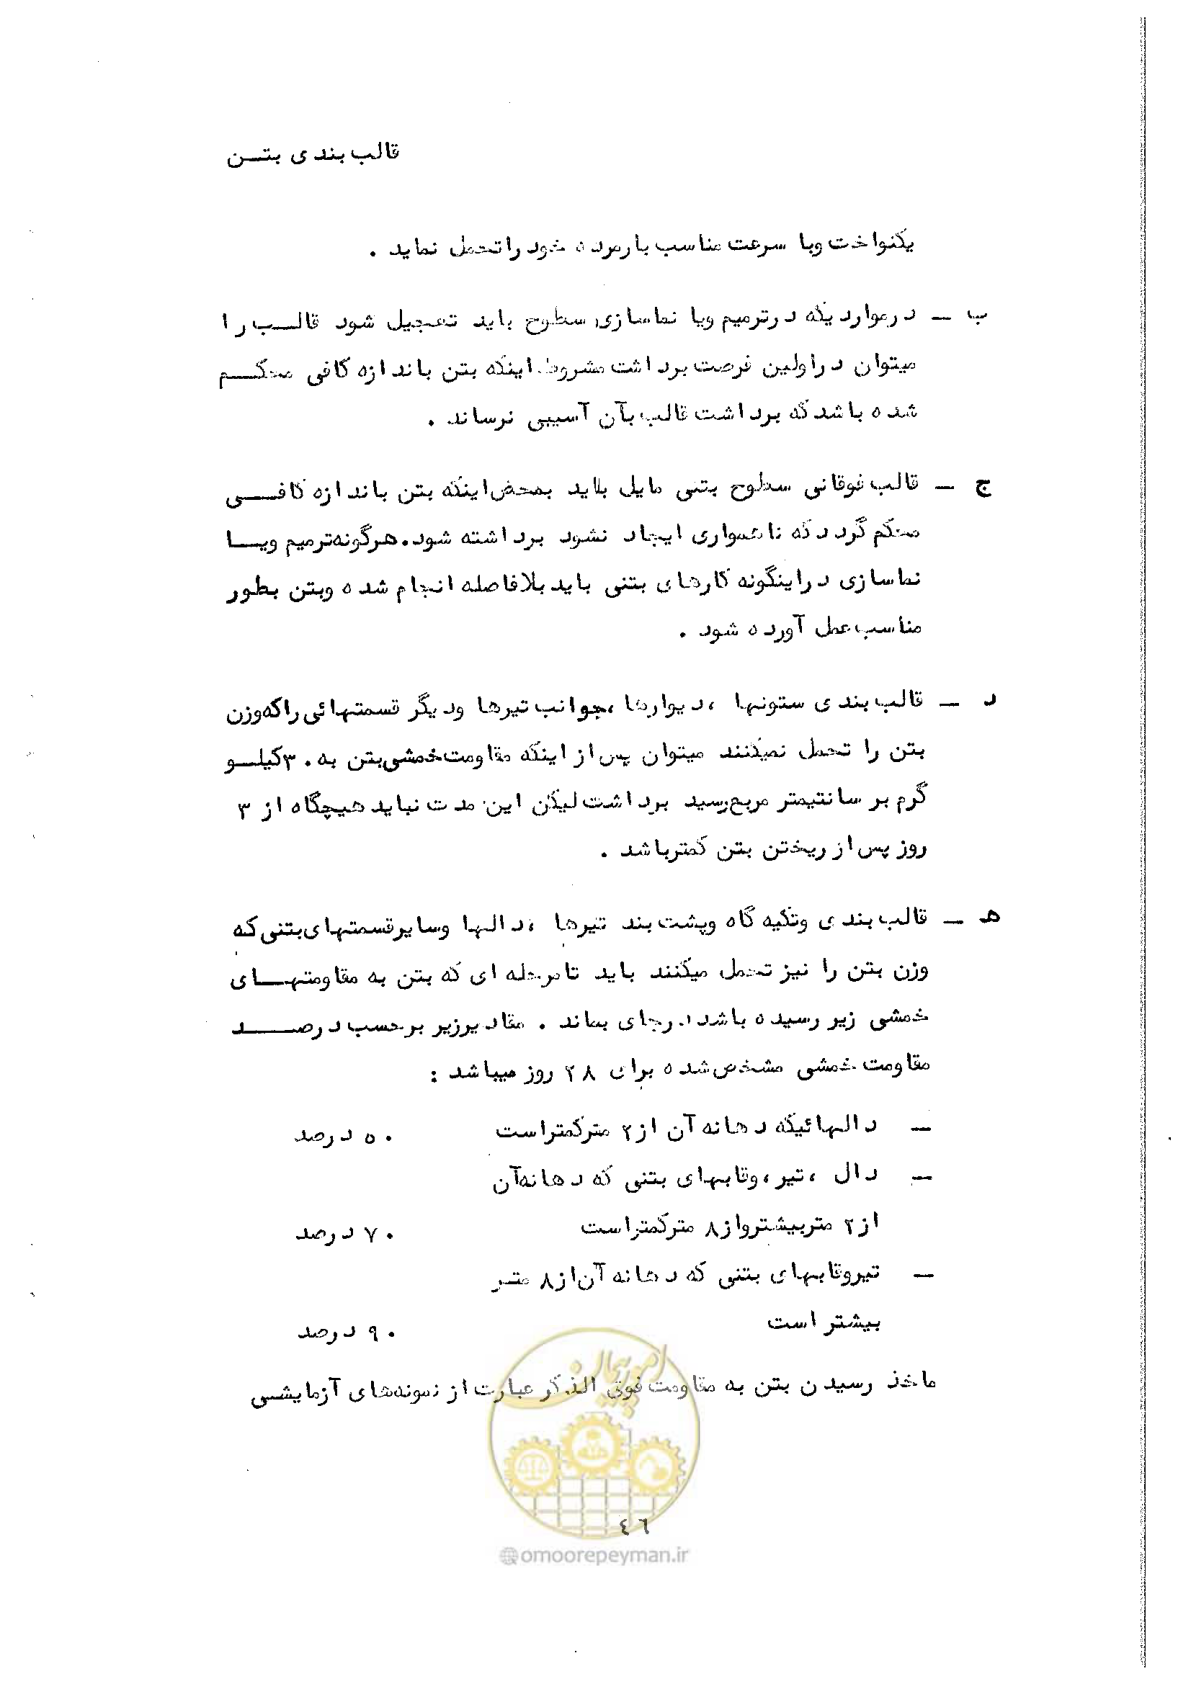 قالب بندی بتـــن
یکنواخت وبا سرعت مناسب بارمرده خود راتحمل نماید .
ب ــ درمواردیکه درترمیم ویا نماسازی سطوح باید تعجیل شود قالــب را
میتوان دراولین فرصت برداشت مشروط اینکه بتن باندازه کافی محکــم
شده باشدکه برداشت قالب بآن آسیبی نرساند .
ج ــ قالب فوقانی سطوح بتنی مایل باید بمحض اینکه بتن باندازه کافـــی
محکم گرددکه ناهمواری ایجاد نشود برداشته شود. هرگونه ترمیم ویــا
نماسازی دراینگونه کارهای بتنی باید بلافاصله انجام شده وبتن بطور
مناسب عمل آورده شود .
د ــ قالب بندی ستونها ، دیوارها ، جوانب تیرها ودیگر قسمتهائی راکه وزن
بتن را تحمل نمیکنند میتوان پس از اینکه مقاومت خمشی بتن به ۳۰ کیلــو
گرم بر سانتیمتر مربع رسید برداشت لیکن این مدت نباید هیچگاه از ۳
روز پس از ریختن بتن کمترباشد .
هـ ــ قالب بندی وتکیه گاه وپشت بند تیرها ، دالها وسایرقسمتهای بتنی که
وزن بتن را نیز تحمل میکنند باید تامرحله ای که بتن به مقاومتهــای
خمشی زیر رسیده باشد درجای بماند . مقادیرزیر برحسب درصـــد
مقاومت خمشی مشخص شده برای ۲۸ روز میباشد :
ــ دالهائیکه دهانه آن از۲ مترکمتراست ۵۰ درصد
ــ دال ، تیر ، وقابهای بتنی که دهانه آن
از۲ متربیشترواز۸ مترکمتراست ۷۰ درصد
ــ تیروقابهای بتنی که دهانه آن از۸ متـر
بیشتر است ۹۰ درصد
ماخذ رسیدن بتن به مقاومت فوق الذکر عبارت از نمونه های آزمایشـی
امور پیمان
٤٦
@omoorepeyman.ir